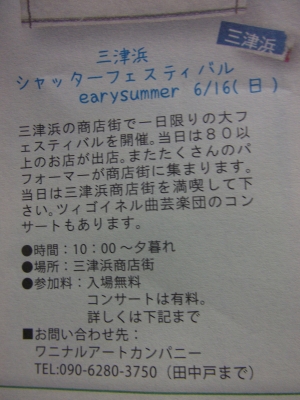 三津浜
三津浜
シャッターフェスティバル
earysummer 6/16(日)
三津浜の商店街で一日限りの大フ
ェスティバルを開催。当日は80以
上のお店が出店。またたくさんのパ
フォーマーが商店街に集まります。
当日は三津浜商店街を満喫して下
さい。ツィゴイネル曲芸楽団のコン
サートもあります。
●時間：10：00～夕暮れ
●場所：三津浜商店街
●参加料：入場無料
コンサートは有料。
詳しくは下記まで
■お問い合わせ先：
ワニナルアートカンパニー
TEL:090-6280-3750（田中戸まで）